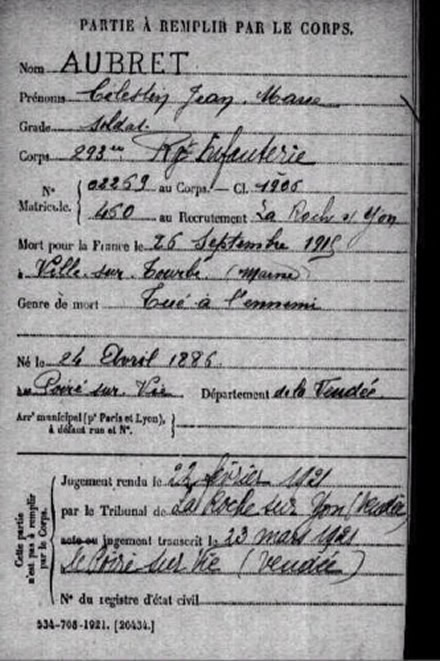 PARTIE À REMPLIR PAR LE CORPS.
Nom AUBRET
Prénoms Célestin Jean Marie
Grade soldat
Corps 293me Rgt Infanterie
N° Matricule. { 02259 au Corps. — Cl. 1906
460 au Recrutement La Roche s/ Yon
Mort pour la France le 26 Septembre 1915
à Ville sur Tourbe (Marne)
Genre de mort Tué à l'ennemi
Né le 24 Avril 1886
au Poiré sur Vie Département de la Vendée
Arrt municipal (pr Paris et Lyon), à défaut rue et N°. }
Cette partie n'est pas à remplir par le Corps.
Jugement rendu le 22 février 1921
par le Tribunal de La Roche sur Yon (Vendée)
acte ou jugement transcrit le 23 mars 1921
le Poiré sur Vie (Vendée)
N° du registre d'état civil
534-708-1921. [26434.]